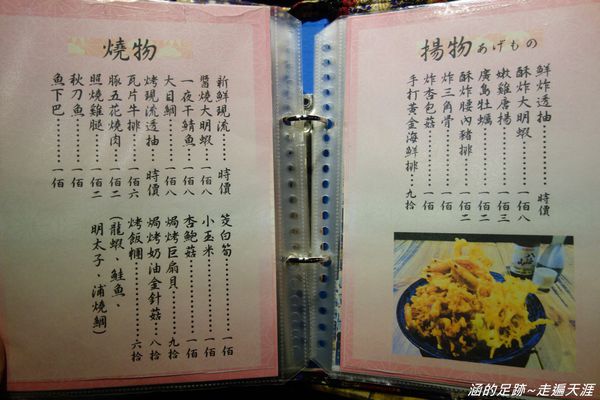 揚物 あげもの
鮮炸透抽………時價
酥炸大明蝦……一佰八
嫩雞唐揚………一佰三
廣島牡蠣………一佰二
酥炸腰內豬排…一佰二
炸三角骨………一佰
炸杏包菇………一佰
手打黃金海鮮排…九拾
燒物
新鮮現流………時價
醬燒大明蝦……一佰八
一夜干鯖魚……一佰八
大目鯛…………一佰八
烤現流透抽……時價
瓦片牛排………一佰六
豚五花燒肉……一佰二
照燒雞腿………一佰二
秋刀魚…………一佰
魚下巴…………一佰
茭白筍…………一佰
小玉米…………一佰
杏鮑菇…………一佰
焗烤巨扇貝……九拾
焗烤奶油金針菇…八拾
烤飯糰…………六拾
(龍蝦、鮭魚、
明太子、浦燒鯛)
涵的足跡~走遍天涯